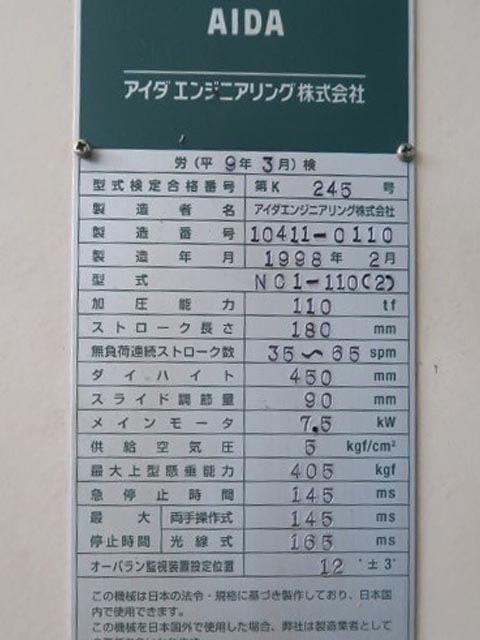 AIDA
アイダエンジニアリング株式会社
労(平 9年 3月)検
型式検定合格番号 第K 245 号
製造者名 アイダエンジニアリング株式会社
製造番号 10411-0110
製造年月 1998年 2月
型式 NC1-110(2)
加圧能力 110 tf
ストローク長さ 180 mm
無負荷連続ストローク数 35〜65 spm
ダイハイト 450 mm
スライド調節量 90 mm
メインモータ 7.5 kW
供給空気圧 5 kgf/cm²
最大上型懸垂能力 405 kgf
急停止時間 145 ms
最大 両手操作式 145 ms
停止時間 光線式 165 ms
オーバラン監視装置設定位置 12 °±3°
この機械は日本の法令・規格に基づき製作しており、日本国
内で使用できます。
この機械を日本国外で使用した場合、弊社は製造業者として